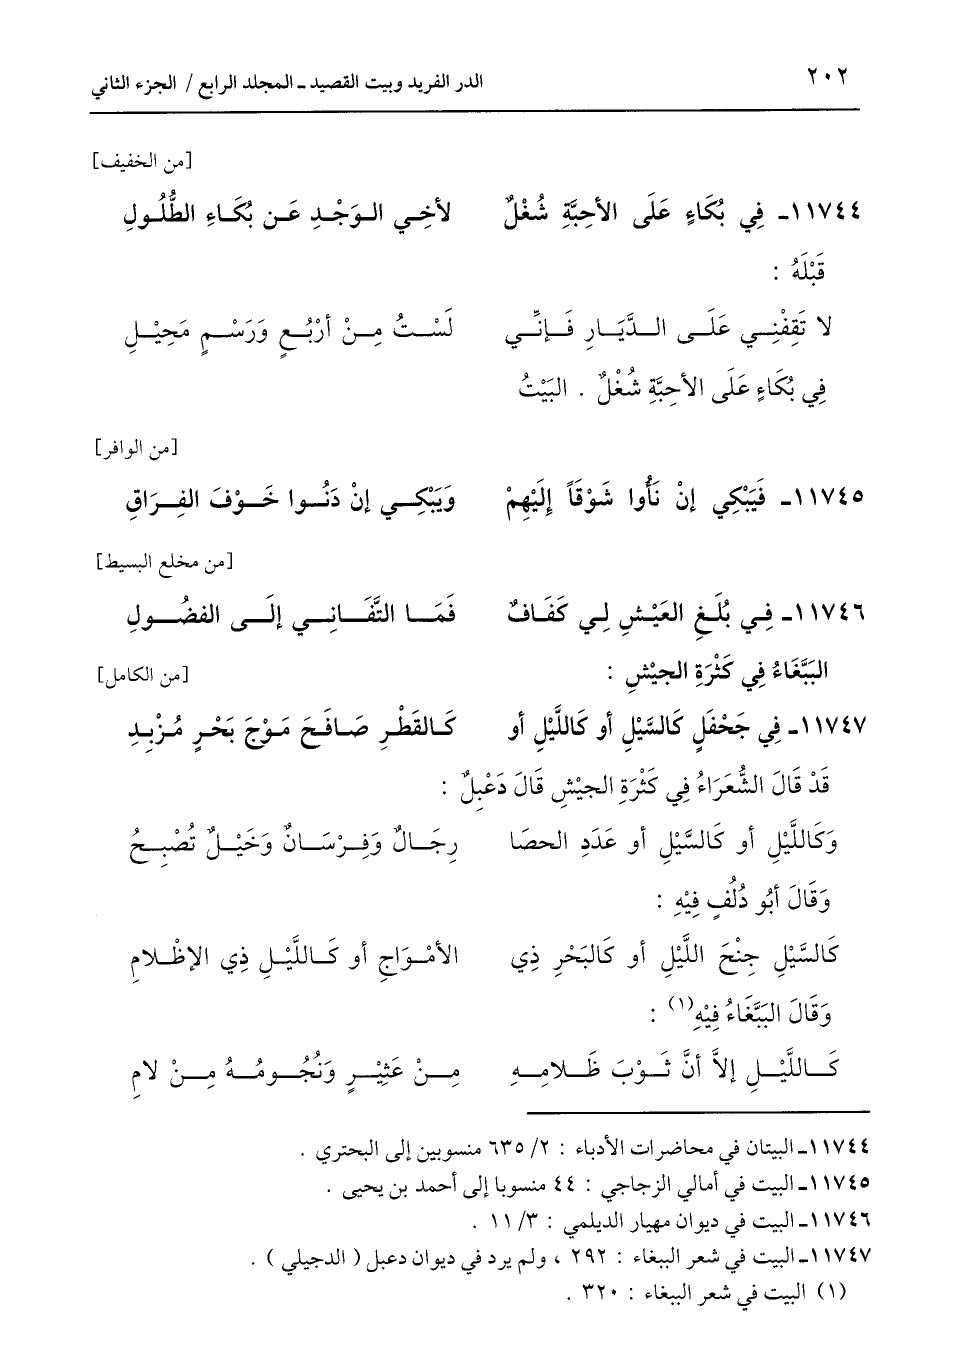 ٢٠٢ الدر الفريد وبيت القصيد ـ المجلد الرابع / الجزء الثاني
[من الخفيف]
١١٧٤٤ـ فِي بُكَاءٍ عَلَى الأحِبَّةِ شُغْلٌ لأخِي الوَجْدِ عَن بُكَاءِ الطُّلُولِ
قَبْلَهُ :
لا تَقِفْنِي عَلَى الدِّيَارِ فَإنِّي لَسْتُ مِنْ أرْبُعٍ وَرَسْمٍ مَحِيْلِ
فِي بُكَاءٍ عَلَى الأحِبَّةِ شُغْلٌ . البَيْتُ
[من الوافر]
١١٧٤٥ـ فَيَبْكِي إنْ نَأوا شَوْقَاً إلَيْهِمْ وَيَبْكِي إنْ دَنُوا خَوْفَ الفِرَاقِ
[من مخلع البسيط]
١١٧٤٦ـ فِي بُلَغِ العَيْشِ لِي كَفَافٌ فَمَا التَّفَانِي إلَى الفضُولِ
البَبَّغَاءُ فِي كَثْرَةِ الجيْشِ : [من الكامل]
١١٧٤٧ـ فِي جَحْفَلٍ كَالسَّيْلِ أو كَاللَّيْلِ أو كَالقَطْرِ صَافَحَ مَوْجَ بَحْرٍ مُزْبِدِ
قَدْ قَالَ الشُّعَرَاءُ فِي كَثْرَةِ الجيْشِ قَالَ دَعْبِلٌ :
وَكَاللَّيْلِ أو كَالسَّيْلِ أو عَدَدِ الحصَا رِجَالٌ وَفِرْسَانٌ وَخَيْلٌ تُصْبِحُ
وَقَالَ أبُو دُلُفٍ فِيْهِ :
كَالسَّيْلِ جِنْحَ اللَّيْلِ أو كَالبَحْرِ ذِي الأمْوَاجِ أو كَاللَّيْلِ ذِي الإظْلامِ
وَقَالَ البَبَّغَاءُ فِيْهِ(١) :
كَاللَّيْلِ إلاَّ أنَّ ثَوْبَ ظَلامِهِ مِنْ عَثِيْرٍ وَنُجُومُهُ مِنْ لامِ
١١٧٤٤ـ البيتان في محاضرات الأدباء : ٢/ ٦٣٥ منسوبين إلى البحتري .
١١٧٤٥ـ البيت في أمالي الزجاجي : ٤٤ منسوبا إلى أحمد بن يحيى .
١١٧٤٦ـ البيت في ديوان مهيار الديلمي : ٣/ ١١ .
١١٧٤٧ـ البيت في شعر الببغاء : ٢٩٢ ، ولم يرد في ديوان دعبل ( الدجيلي ) .
(١) البيت في شعر الببغاء : ٣٢٠ .